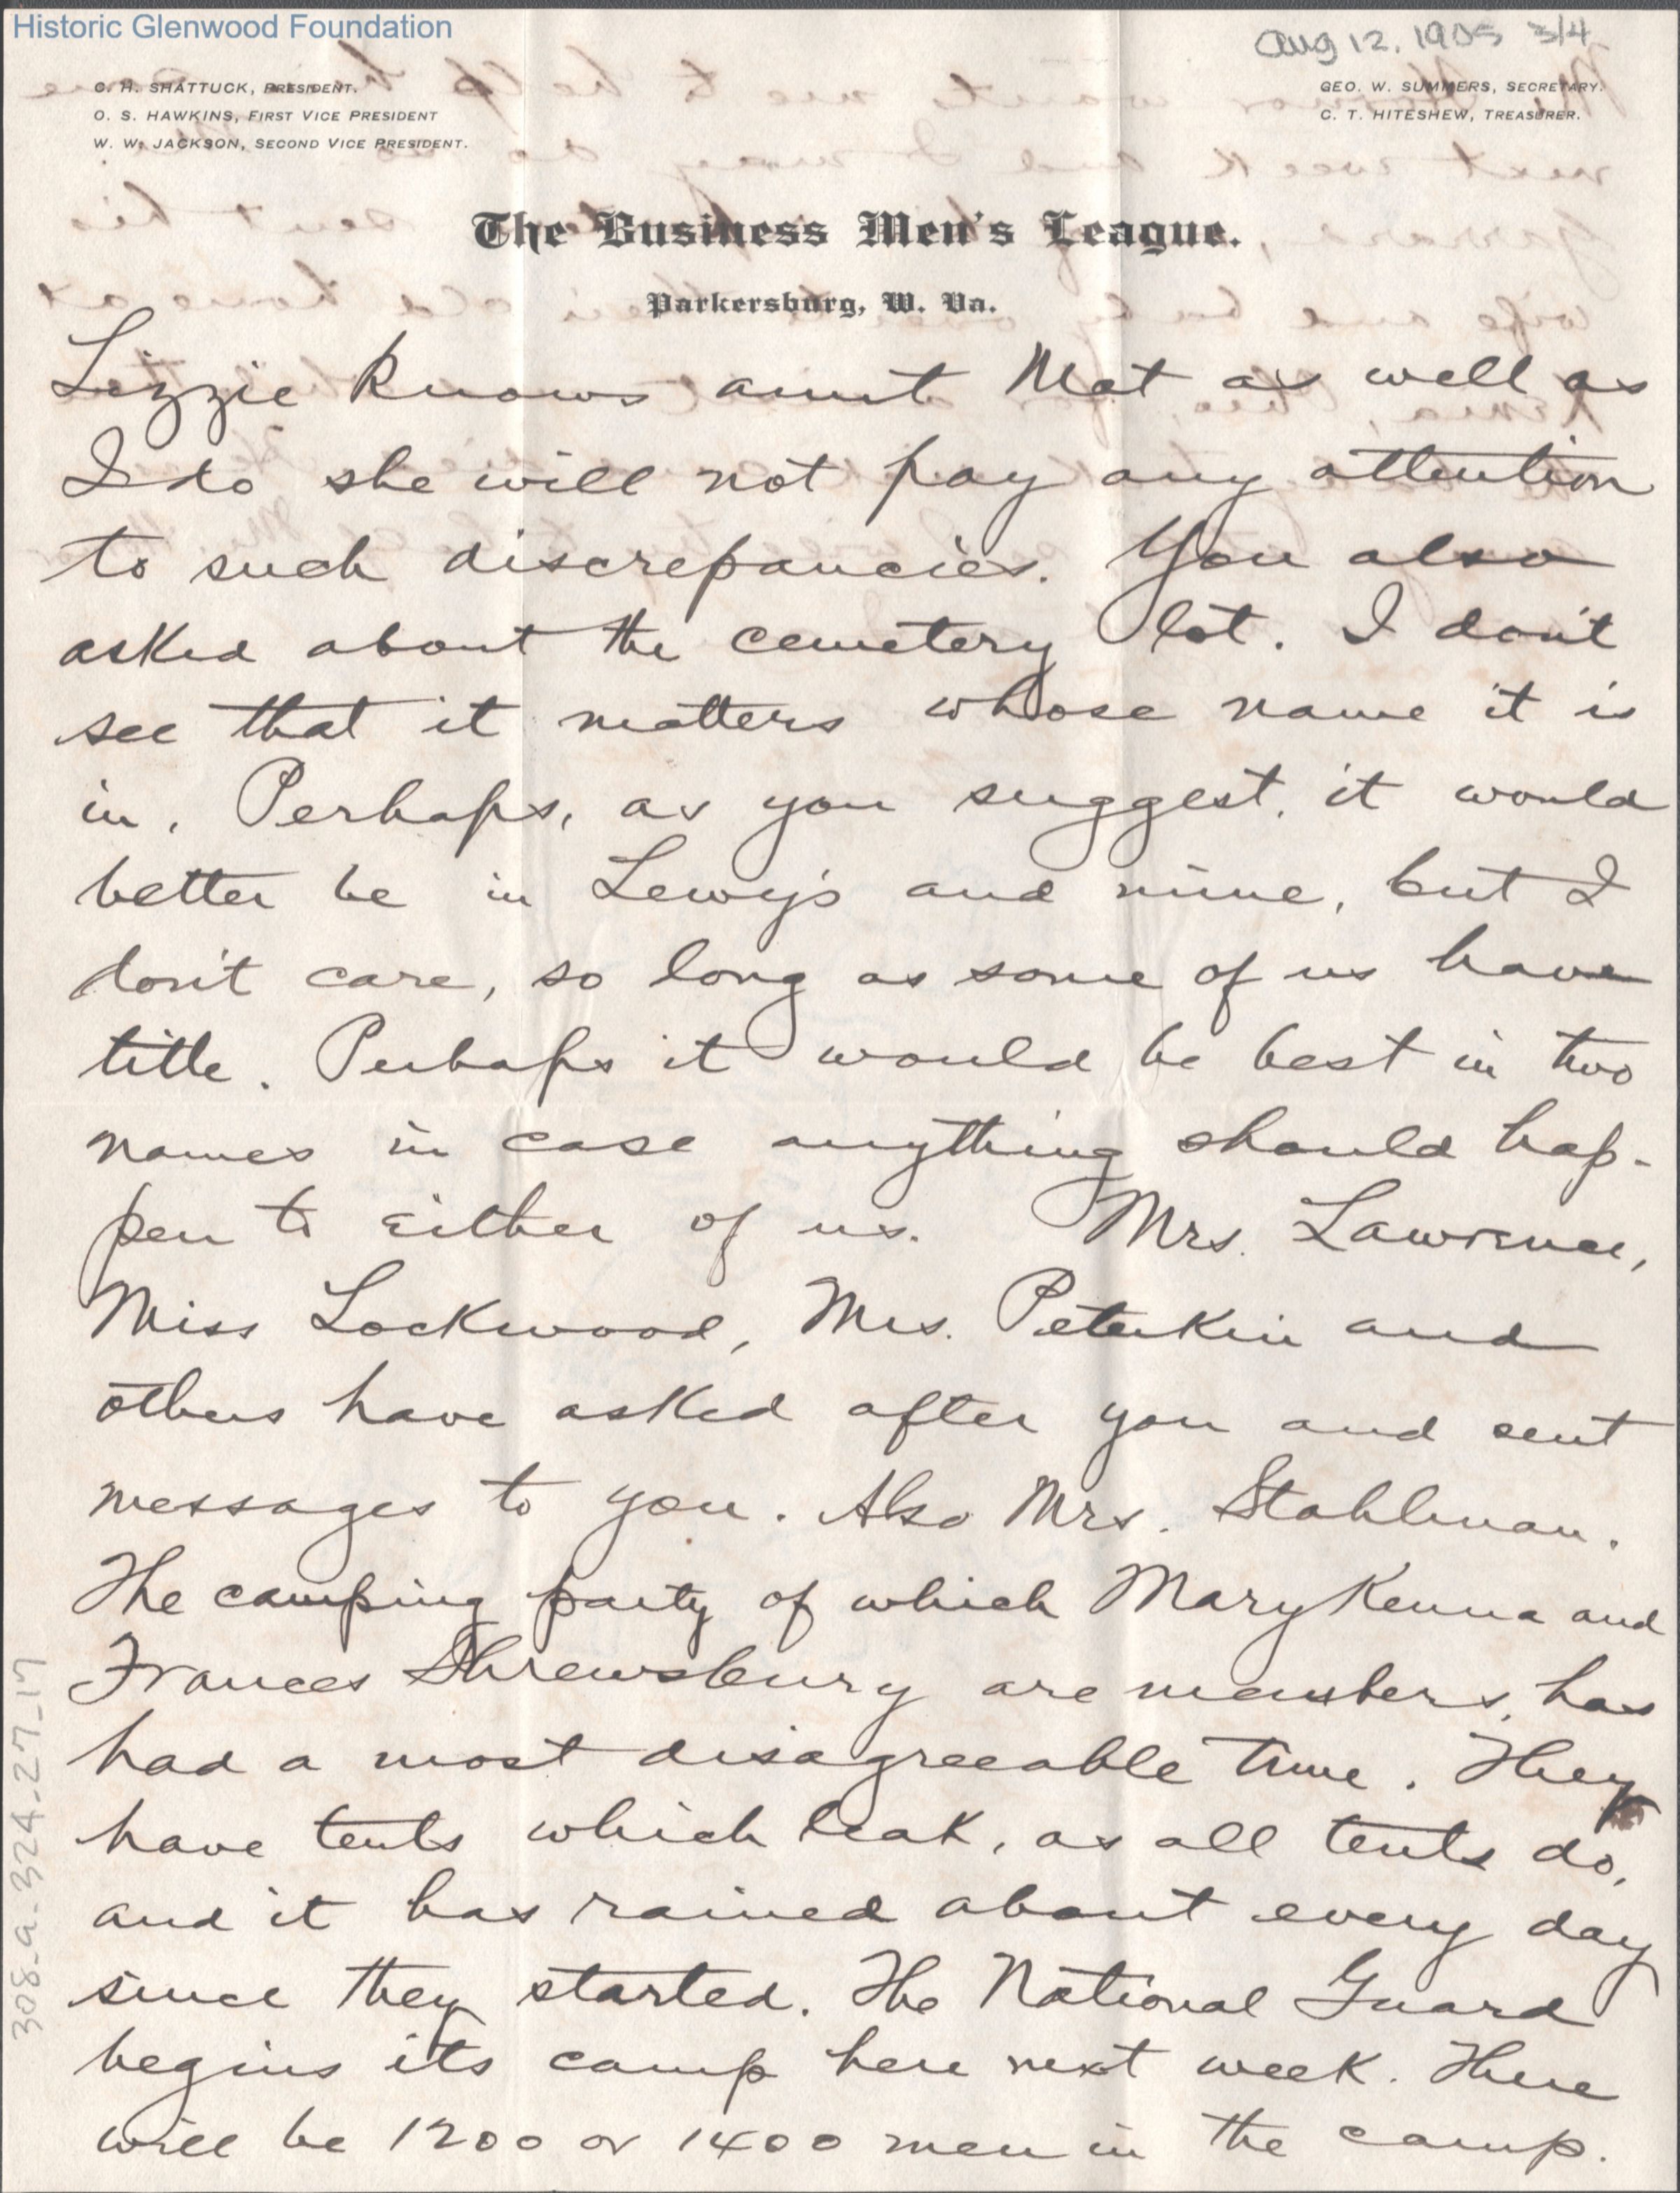 Historic Glenwood Foundation
Aug 12, 1905 3/4
C. H. SHATTUCK, PRESIDENT.
O. S. HAWKINS, FIRST VICE PRESIDENT
W. W. JACKSON, SECOND VICE PRESIDENT.
GEO. W. SUMMERS, SECRETARY.
C. T. HITESHEW, TREASURER.
The Business Men's League.
Parkersburg, W. Va.
Lizzie knows aunt Mat as well as
I do she will not pay any attention
to such discrepancies. You also
asked about the cemetery lot. I don't
see that it matters whose name it is
in. Perhaps, as you suggest, it would
better be in Lewy's and mine, but I
don't care, so long as some of us have
title. Perhaps it would be best in two
names in case anything should hap-
pen to either of us. Mrs. Lawrence,
Miss Lockwood, Mrs. Peterkin and
others have asked after you and sent
messages to you. Also Mrs. Stahlman.
The camping party of which Mary Kenna and
Frances Shrewsbury are members, has
had a most disagreeable time. They
have tents which leak, as all tents do,
and it has rained about every day
since they started. The National Guard
begins its camp here next week. There
will be 1200 or 1400 men in the camp.
308_a_324_27_17